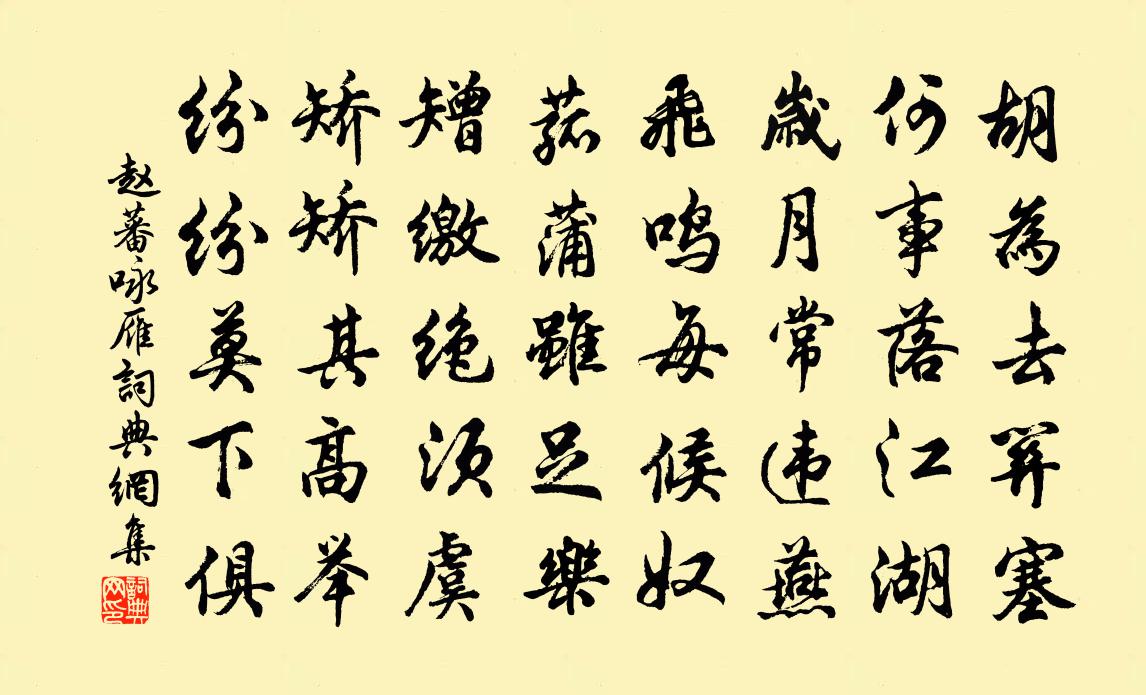 胡為去關塞
何事落江湖
歲月常違燕
飛鳴每候奴
菰蒲雖足樂
矰繳絶須虞
矫矫其高举
纷纷莫下俱
赵蕃咏雁詞典網集
詞典网印